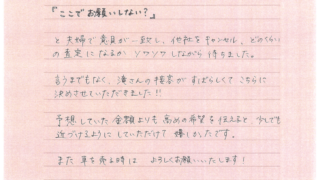 『ここでお願いしない？』
と夫婦で意見が一致し、他社をキャンセル、どのくらい
の査定になるか ソワソワしながら待ちました。
言うまでもなく、濱さんの接客がすばらしくて こちらに
決めさせていただきました!!
予想していた金額よりも 高めの希望を伝えると、少しでも
近づけるように していただけて 嬉しかったです。
また 車を売る時は よろしくお願いいたします！